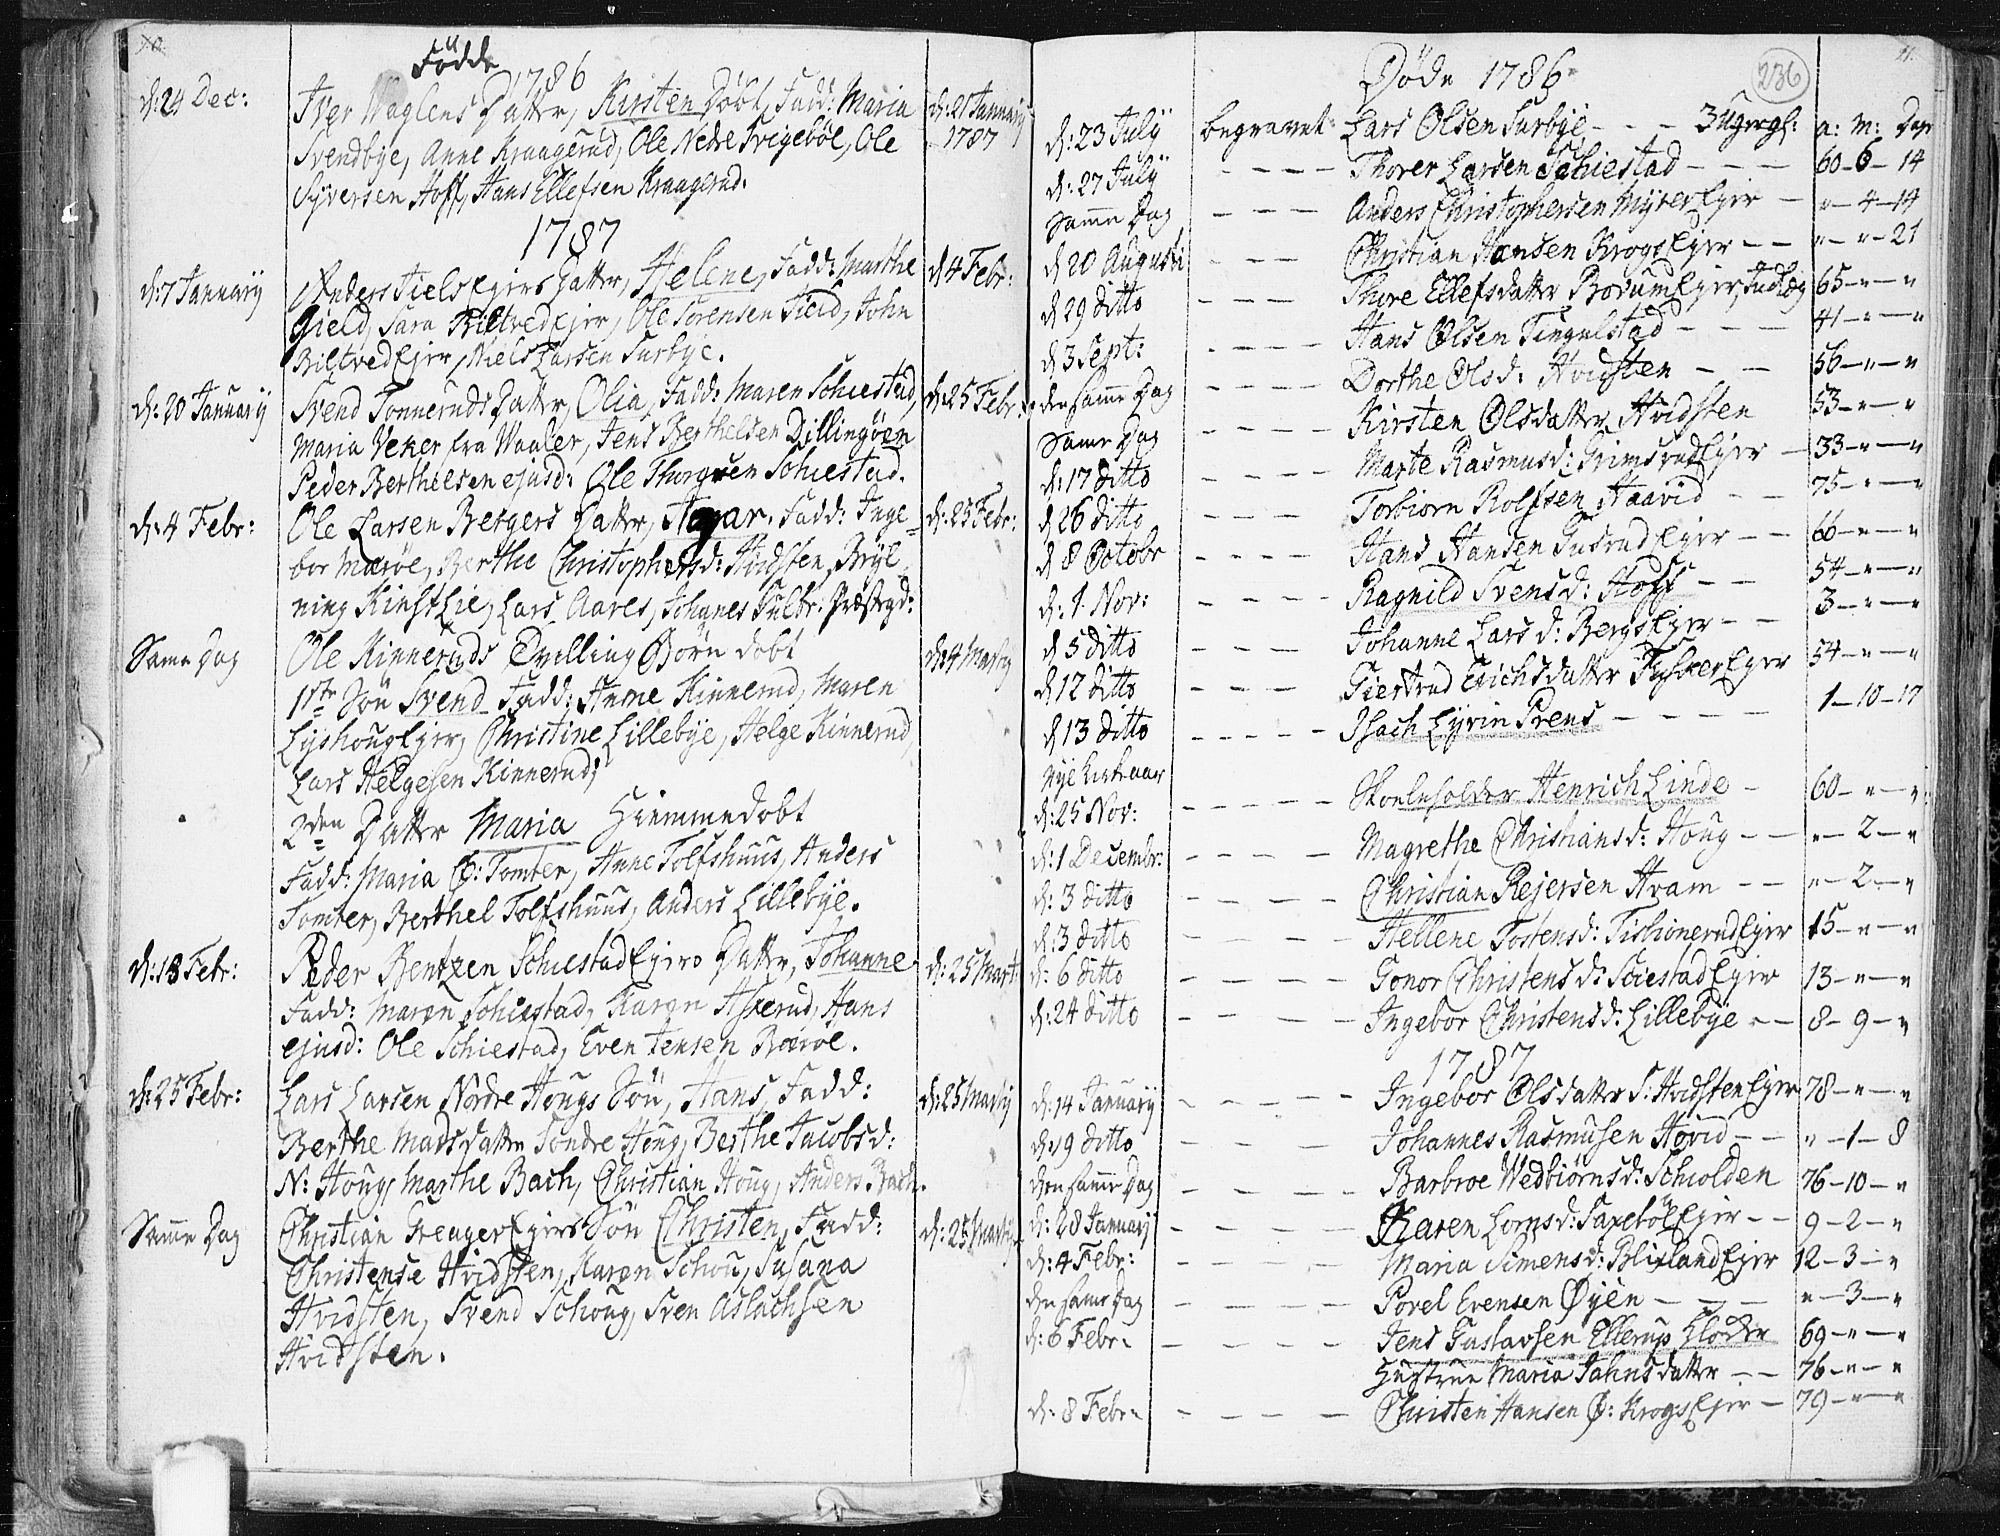 10
Födde
1786
d: 24 Dec: Iver Waglens Datter, Kirsten Döbt, Fadd: Maria d: 21 January
Svendbye, Anne Kraagerud, Ole Nedre Svigeböl, Ole 1787
Syversen Hoff, Hans Ellefsen Kraagerud.
1787
d: 7 January Anders Fields Eiers Datter, Helene, Fadd: Marthe d 4 Febr:
Gield, Sara Biltved Ejer, Ole Sörensen Field, John
Biltved Ejer, Niels Larsen Surbye.
d: 20 January Svend Tonneruds Datter, Olia, Fadd: Maren Schiestad, d: 25 Febr:
Maria Veker fra Waaler, Jens Berthelsen Dillingöen
Peder Berthelsen ejusd: Ole Thorersen Schiestad.
d: 4 Febr: Ole Larsen Bergers Datter, Agar. Fadd: Inge= d: 25 Febr:
bor Mæröe, Berthe Christophersd: Hvidsten, Bryl
ning Kinst Lie, Lars Aares, Johanes Præstegd:
Same Dag Ole Kinneruds Tvilling Börn döbt d: 4 Marty
1ste Sön Svend Fadd: Anne Kinnerud, Maren
Lyshoug Ejer, Christine Lillebye, Helge Kinnerud,
Lars Helgesen Kinnerud;
2den Datter Maria Hiemmedöbt
Fadd: Maria Ö: Tomter, Anne Tolfshuus, Anders
Tomter, Berthel Tolfshuus, Anders Lillebye.
d: 18 Febr: Peder Bentzen Schiestad Ejers Datter, Johanne d: 25 Mart:
Fadd: Maren Schiestad, Karen Askerud, Hans
ejusd: Ole Schiestad, Even Jensen Bæröe.
d: 25 Febr: Lars Larsen Nordre Hougs Sön, Hans, Fadd: d: 25 Marty
Berthe Madsdatter Söndre Houg, Berthe Jacobsd:
N: Houg, Marthe Bach, Christian Houg, Anders Bach.
Same Dag Christian Ejers Sön Christen, Fadd: d: 25 Marty
Christense Hvidsten, Karen Schou, Susana
Hvidsten, Svend Schoug, Sven Aslachsen
Hvidsten.
11.
236
Döde 1786
d: 23 July begravet Lars Olsen Surbye - - - 3 ugergl: a: m: Dage
d: 27 July - - - - Thorer Larsen Schiestad - - - 60 - 6 - 14
Same Dag - - - - Anders Christophersen Myrer Ejer - " - 4 - 14
d 20 Augusti - - - Christian Hansen Krogs Ejer - - " - " - 21
d 29 ditto - - - - Thore Ellefsdatter Borum Ejer, 65 - " - "
d 3 Sept: - - - - Hans Olsen Tingulstad - - - 41 - " - "
den same Dag - - - - Dorthe Olsd: Hvidsten - - 56 - " - "
Same Dag - - - - Kirsten Olsdatter Hvidsten 53 - " - "
d: 17 ditto - - - Marte Rasmusd: Grimsrud Ejer - 33 - " - "
d 26 ditto - - - - Torbiörn Rolfsen Haavid - - 75 - " - "
d 8 Octobr - - - - Hans Hansen Ejer - - 66 - " - "
d: 1 Nov: - - - - Ragnild Svensd: Hoff - - 54 - " - "
d 5 ditto - - - Johanne Larsd: Bergs Ejer - - 3 - " - "
d 12 ditto - - - - Giertrud Erichsdatter Ejer 54 - " - "
d 13 ditto - - - - - Isach Lyrin Prens - - - - 1 - 10 - 17
Nye Kirkeaar
d: 25 Nov: - - - - - Skoeleholder Henrich Linde - 60 - " - "
d: 1 Decembr: - - - - Magrethe Christiansd: Houg - - " - 2 - "
d: 3 ditto - - - - Christian Rejersen Hvam - - " - 2 - "
d: 3 ditto - - - - Hellene Tostensd: Ejer 15 - " - "
d: 6 ditto - - - - Gonor Christensd: Sciestad Ejer 13 - " - "
d: 24 ditto - - - - Ingebor Christensd: Lillebye - - 8 - 9 - "
1787
d: 14 January - - - - - Ingebor Olsdatter S: Hvidsten Ejer 78 - " - "
d: 19 ditto - - - - Johannes Rasmusen Hovid - - " - 1 - 8
den same Dag - - - - Barbroe Wedbiörnsd: Schiolden 76 - 10 - "
d: 28 January - - - - Karen Lornsd: Saxeböl Ejer - - 9 - 2 - "
d: 4 Febr: - - - - Maria Simensd: Blixland Ejer 12 - 3 - "
den same Dag - - - - Povel Evensen Øyen - - - " - 3 - "
d: 6 Febr. - - - - Jens Gustavsen Ellerup Kloker 69 - " - "
Hustrue Maria Jahnsdatter - - 76 - " - "
d: 8 Febr. - - - - Christen Hansen Ö: Krogs Ejer - 79 - " - "